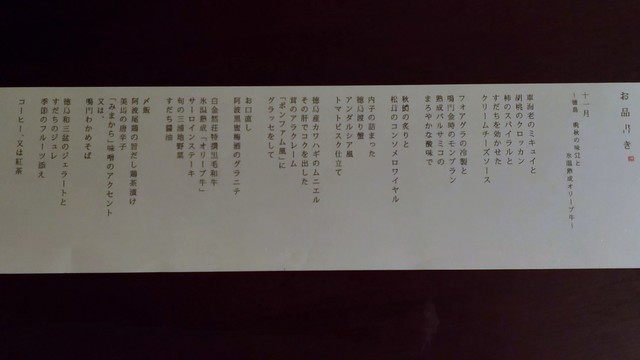 お品書き
十一月
～徳島 晩秋の味覚と
氷温熟成オリーブ牛～
車海老のミキュイと
胡桃のクロッカン
柿のスパイラルと
すだちを効かせた
クリームチーズソース
フォアグラの冷製と
鳴門金時のモンブラン
熟成バルサミコの
まろやかな酸味で
秋鱧の炙りと
松茸のコンソメロワイヤル
内子の詰まった
徳島渡り蟹
アンダルシア風
トマトビスク仕立て
徳島産カワハギのムニエル
その肝でコクを出した
茸のアラクレーム
「ボンファム風」に
グラッセをして
お口直し
阿波黒蜜梅酒のグラニテ
白金然荘特撰黒毛和牛
氷温熟成「オリーブ牛」
サーロインステーキ
旬の三浦地野菜
すだち醤油
〆飯
阿波尾鶏の旨だし鶏茶漬け
美馬の唐辛子
「みまから」味噌のアクセント
又は
鳴門わかめそば
徳島和三盆のジェラートと
すだちのジュレ
季節のフルーツ添え
コーヒー、又は紅茶